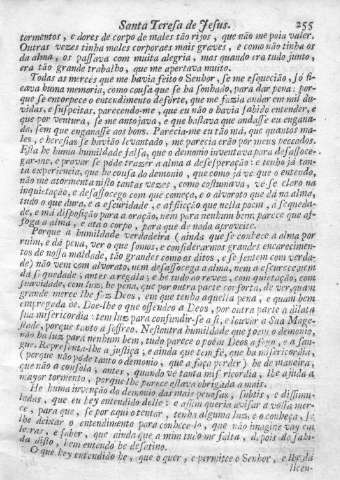 Santa Teresa de Jesus. 255
tormentos, e dores de corpo de males tão rijos, que não me poia valer.
Outras vezes tinha meles corporaes mais graves, e como não tinha os
da alma, os passava com muita alegria, mas quando era tudo junto,
era tão grande trabalho, que me apertava muito.
Todas as mercês que me havia feito o Senhor, se me esquecião, só fi-
cava huma memoria, como cousa que se ha sonhado, para dar pena: por-
que se entorpece o entendimento de sórte, que me fazia andar em mil du-
vidas, e suspeitas, parecendo-me, que eu não o havia sabido entender, e
que por ventura, se me antojava, e que bastava que andasse eu engana-
da, sem que enganasse aos bons. Parecia-me eu tão má, que quantos ma-
les, e heresias se havião levantado, me parecia erão por meus peccados.
Esta he huma humildade falsa, que o demonio inventava para desassoce-
gar-me, e provar se póde trazer a alma a desesperação: e tenho já tan-
ta experiencia, que he cousa do demonio, que como já ve que o entendo,
não me atormenta nisto tantas vezes, como costumava, vê se claro na
inquietação, e desassocego com que começa, e o alvoroto que dá na alma,
tudo o que dura, e a escuridade, e afflicção que nella poem, a sequeda-
de, e má disposição para a oração, nem para nenhum bem; parece que af-
foga a alma, e ata o corpo, para que de nada aproveite.
Porque a humildade verdadeira (ainda que se conhece a alma por
ruim, e dá pena, ver o que somos, e consideramos grandes encarecimen-
tos de nossa maldade, tão grandes como os ditos, e se sentem com verda-
de) não vem com alvoroto, nem desassocega a alma, nem a escurece, nem
dá sequedade; antes a regala; e he tudo ao revez, com quietação, com
suavidade, com luz, he pena, que por outra parte conforta, de ver, quam
grande merce lhe faz Deos, em que tenha aquella pena, e quam bem
empregada he. Doe-lhe o que offendeo a Deos, por outra parte a dilata
sua misericordia: tem luz para confundir-se a si, e louvar a Sua Mage-
stade, porque tanto a soffreo. Nestoutra humildade que poem o demonio,
não ha luz para nenhum bem, tudo parece o poem Deos a fogo, e a san-
gue. Representa-lhe a justiça, e ainda que tem fé, que ha misericordia,
(porque não póde tanto o demonio, que a faça perder) he de maneira,
que não a consola, antes, quando vê tanta misericordia, lhe ajuda a
mayor tormento, porque lhe parece estava obrigada a mais.
He huma invenção do demonio das mais penosas, subtis, e dissimu-
ladas, que eu hey entendido delle: e assim queria avisar a vossa mer-
ce, para que, se por aqui o tentar, tenha alguma luz, e o conheça, se
lhe deixar o entendimento para conhece-lo, que não imagine vay em
letras, e saber, que ainda que a mim tudo me falta, depois de sahi-
da disto, bem entendo he desatino.
O que hey entendido he, que o quer, e permitte o Senhor, e lhe dá
licen-